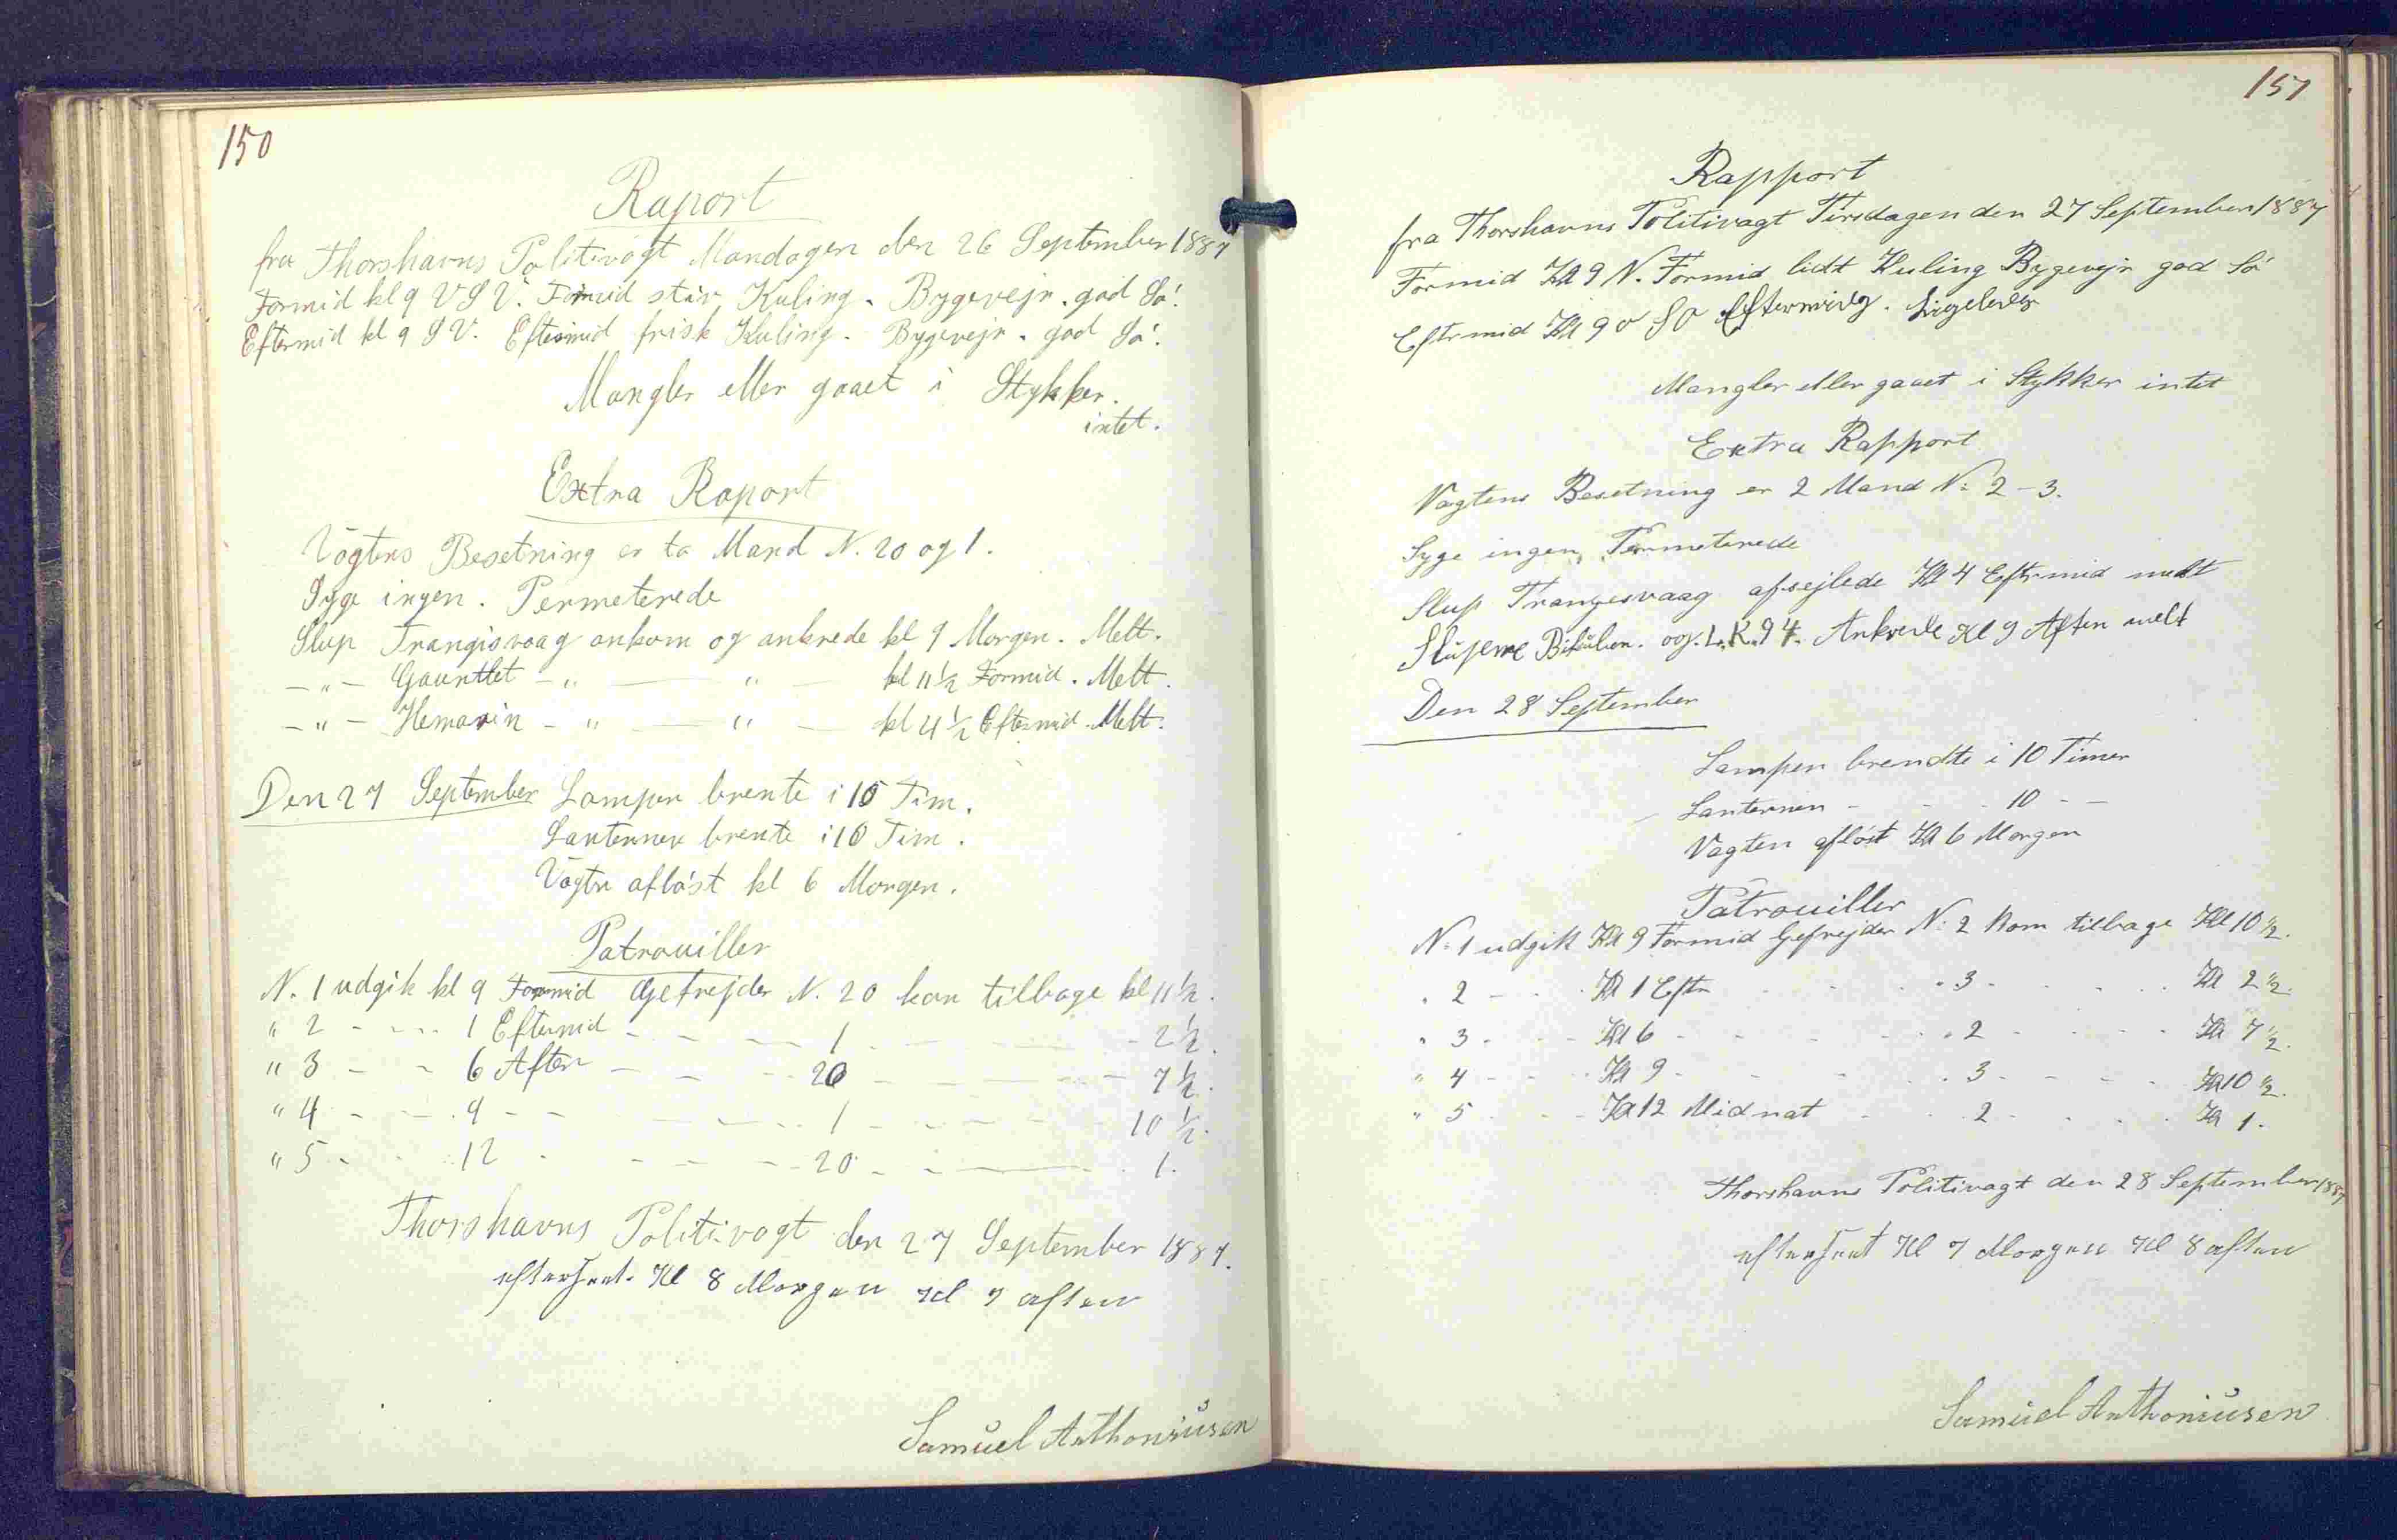 150
Raport
fra Thorshavns Politivagt Mandagen den 26 September 1887
Formid kl 9 V S V. Formid stiv Kuling. Bygevejr. god Sö.
Eftermid kl 9 S V. Eftermid frisk Kuling. Bygevejr. god Sö.
Mangler eller gaaet i Stykker.
intet.
Extra Raport
Vagtens Besetning er to Mand N. 20 og 1.
Syge ingen. Permeterede
Slup Trangisvaag ankom og ankrede kl 9 Morgen. Melt.
— " — Gaunttet — " — " — kl 11 ½ Formid. Melt.
— " — Hemavin — " — " — kl 4 ½ Eftermid. Melt.
Den 27 September Lampen brente i 10 Tim.
Lanternen brente i 10 Tim.
Vagtn aflöst kl 6 Morgen.
Patrouiller
N. 1 udgik kl 9 Formid Gefrejder N. 20 kom tilbage kl 11 ½.
" 2 - - - 1 Eftermid - - - 1 - - - 2 ½.
" 3 - - 6 Aften - - - 20 - - - 7 ½.
" 4 - - - 9 - - - - - 1 - - - 10 ½.
" 5 - - 12 - - - - 20 - - - 1.
Thorshavns Politivagt den 27 September 1887.
efterseet. Kl 8 Morgen Kl 7 aften
Samuel Anthoniusen
151
Rapport
fra Thorshavns Politivagt Tirsdagen den 27 September 1887
Formid Kl 9 N. Formid lidt Kuling Bygevejr god Sö
Eftrmid Kl 9 O S O Eftermidg. Ligeledes
Mangler eller gaaet i Stykker intet
Extra Rapport
Vagtens Besetning er 2 Mand N: 2 - 3.
Syge ingen, Permeterede
Slup Trangesvaag afsejlede Kl 4 Eftrmid melt
Slupene og. L.K. 94. Ankrede Kl 9 Aften melt
Den 28 September
Lampen brendte i 10 Timer
Lanternen - - - 10 - -
Vagten aflöst Kl 6 Morgen
Patrouiller
N: 1 udgik Kl 9 Formid Gefrejder N: 2 kom tilbage Kl 10 ½.
" 2 - - - Kl 1 Eftr - - - 3 - - - Kl 2 ½.
" 3 - - - Kl 6 - - - - 2 - - - Kl 7 ½.
" 4 - - - Kl 9 - - - - 3 - - - Kl 10 ½.
" 5 - - - Kl 12 Midnat - - 2 - - - Kl 1.
Thorshavns Politivagt den 28 September 1887
efterseet Kl 7 Morgen Kl 8 aften
Samuel Anthoniusen